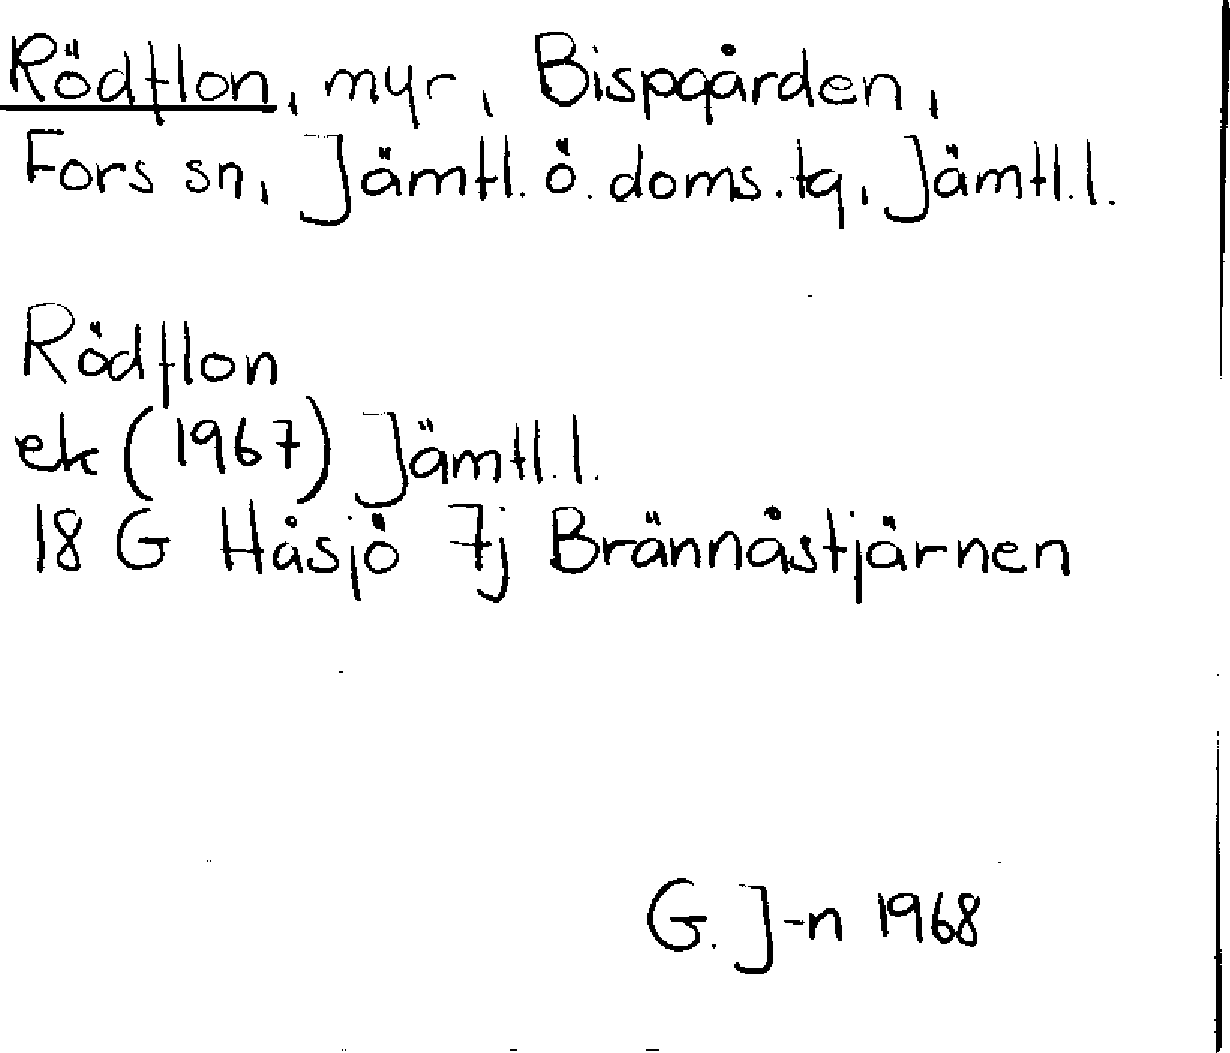 Rödflon, myr, Bispgården,
Fors sn, Jämtl. ö. doms. tg, Jämtl. l.
Rödflon
ek (1967) Jämtl. l.
18 G Håsjö 7j Brännåstjärnen
G. J-n 1968